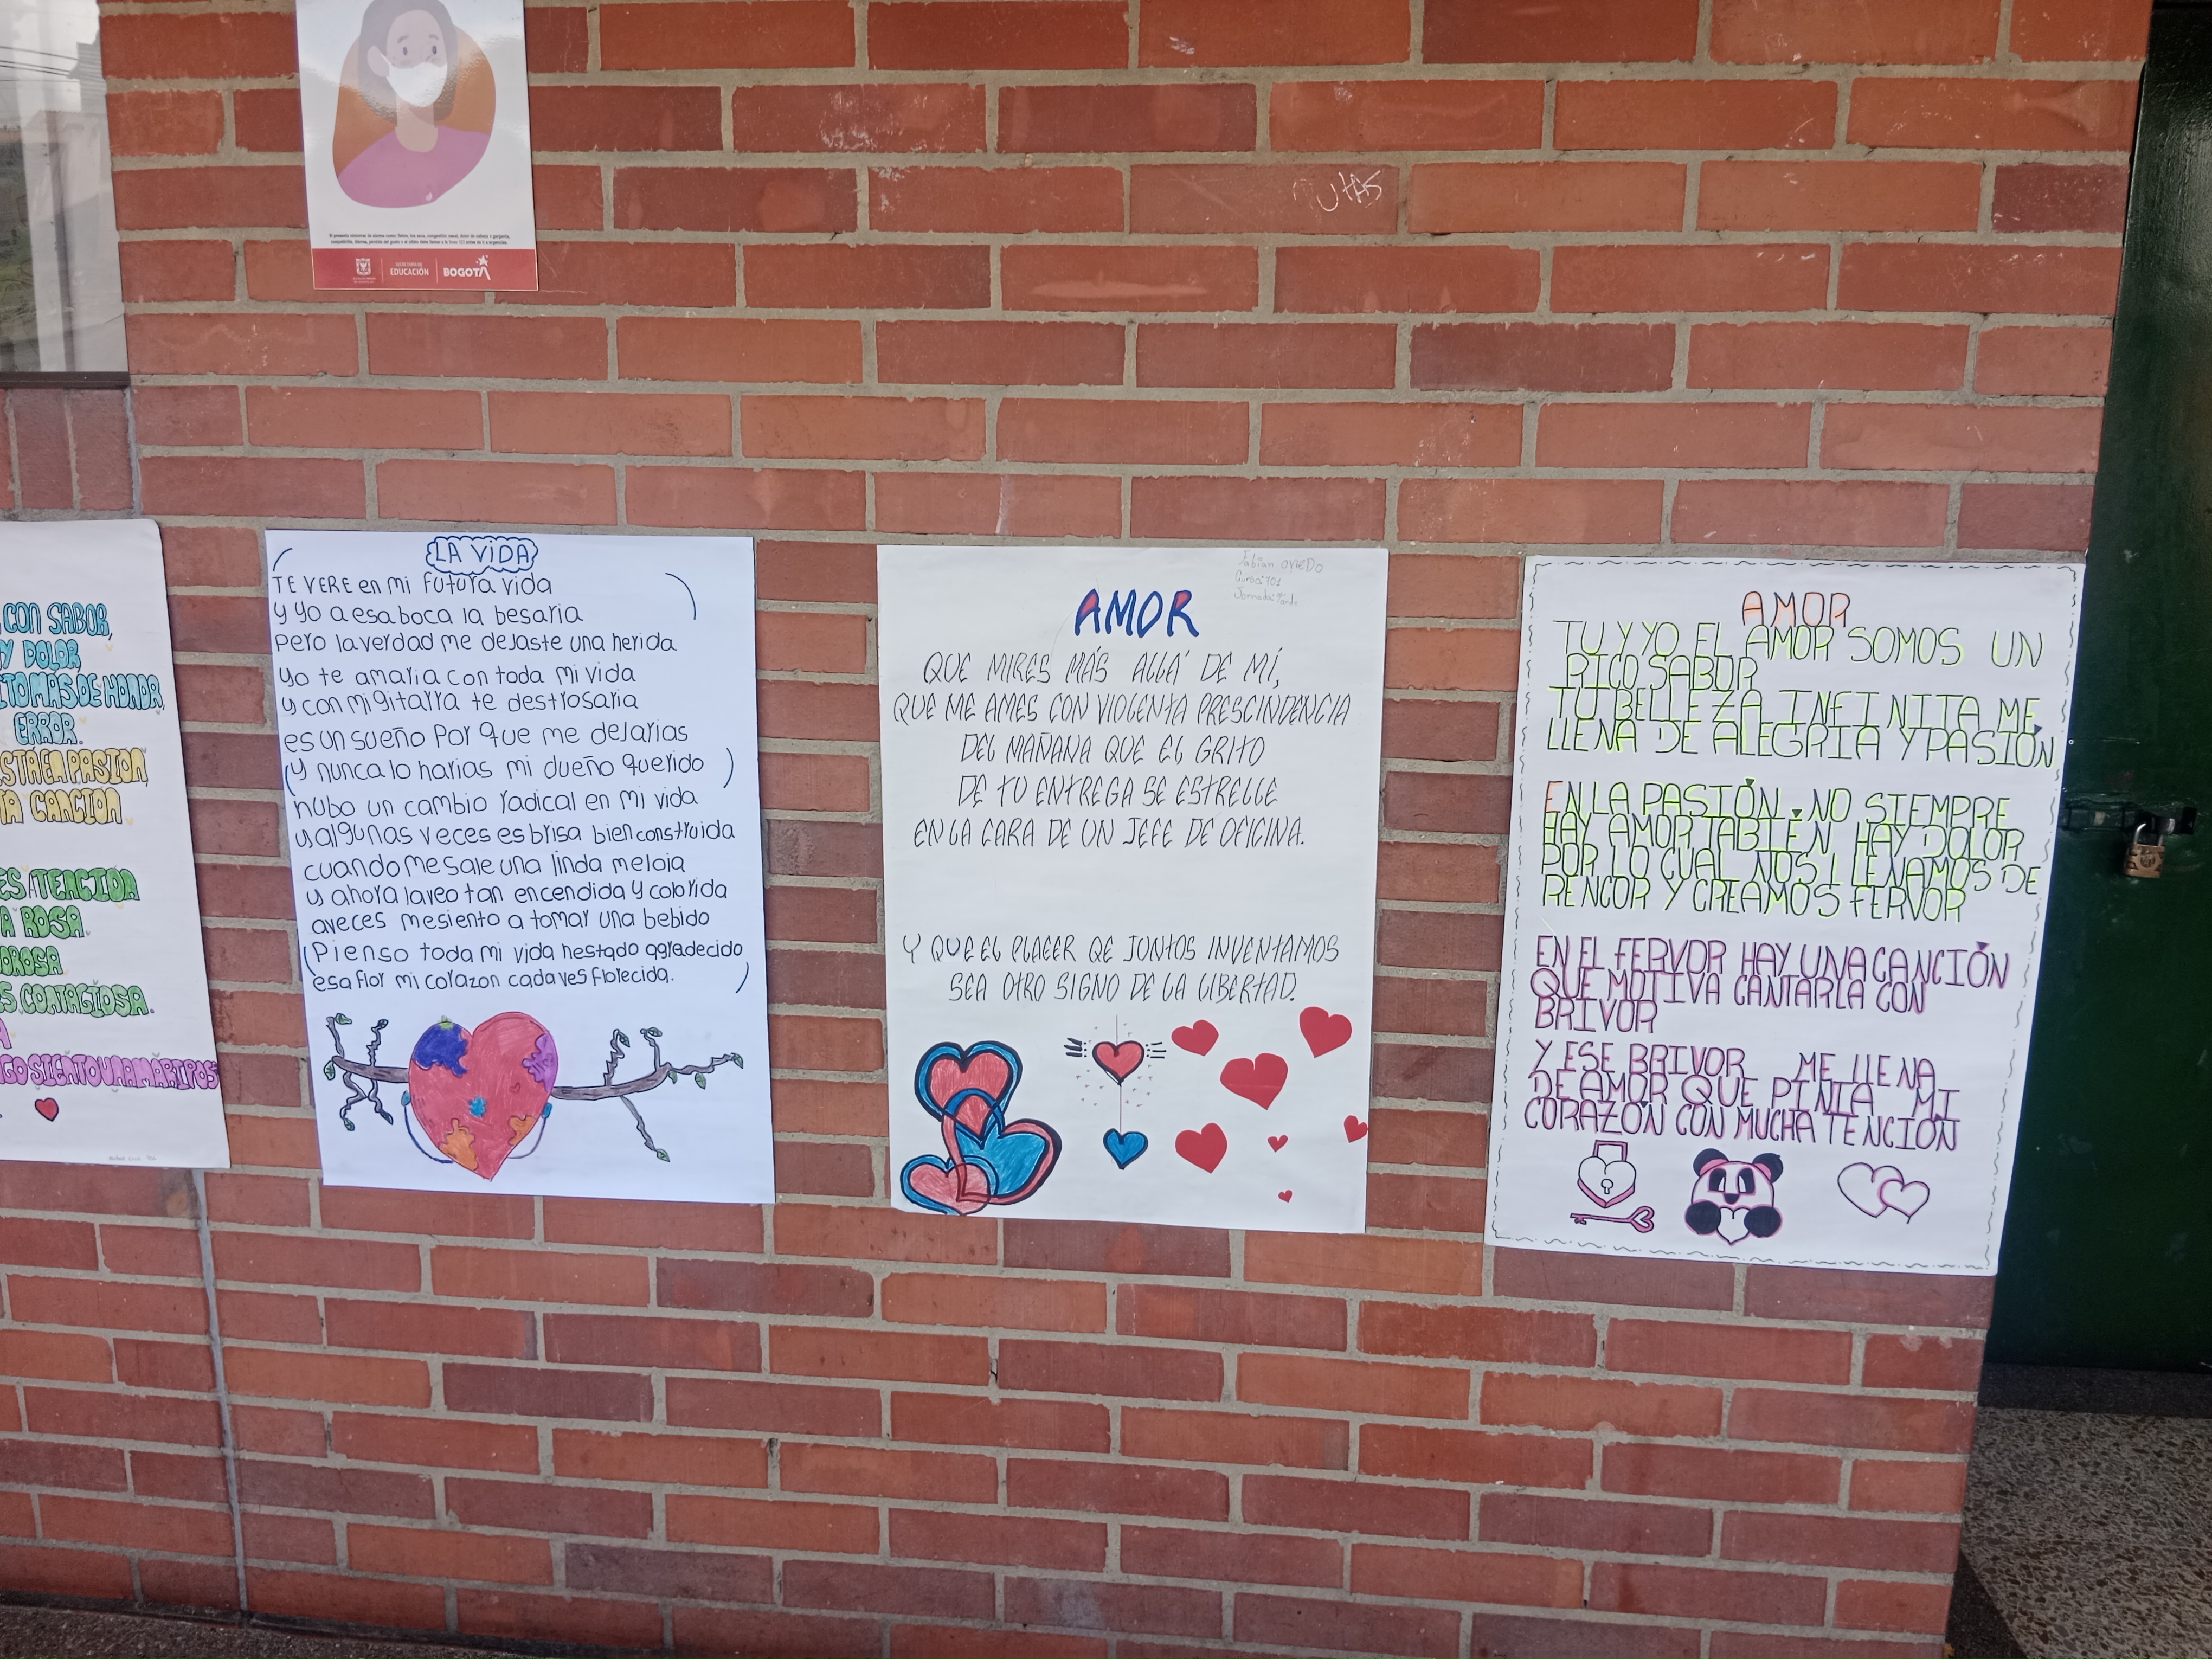 SECRETARÍA DE
EDUCACIÓN
BOGOTÁ
CON SABOR,
Y DOLOR
ITOMAS DE HONOR,
ERROR.
STÁ EN PASION,
TA CANCION
ES ATENCION
A ROSA
OROSA
ES CONTAGIOSA.
A
GO SIENTO UNA MARIPOS
LA ViDA
TE VERE en mi futura vida
y yo a esa boca la besaria
pero la verdad me dejaste una herida
yo te amaria con toda mi vida
y con mi gitarra te destrosaria
es un sueño por que me dejarias
(y nunca lo harias mi dueño querido)
hubo un cambio radical en mi vida
y algunas veces es brisa bien construida
cuando me sale una linda meloia
y ahora la veo tan encendida y colorida
aveces mesiento a tomar una bebido
(Pienso toda mi vida hestado agradecido
esa flor mi corazon cada ves florecida.)
Fabian OVIEDO
Curso: 701
Jornada: tarde
AMOR
QUE MIRES MÁS ALLÁ DE MÍ,
QUE ME AMES CON VIOLENTA PRESCINDENCIA
DEL MAÑANA QUE EL GRITO
DE TU ENTREGA SE ESTRELLE
EN LA CARA DE UN JEFE DE OFICINA.
Y QUE EL PLACER QE JUNTOS INVENTAMOS
SEA OTRO SIGNO DE LA LIBERTAD.
AMOR
TU Y YO EL AMOR SOMOS UN
RICO SABOR
TU BELLEZA INFINITA ME
LLENA DE ALEGRIA Y PASIÓN
EN LA PASIÓN NO SIEMPRE
HAY AMOR TABIÉN HAY DOLOR
POR LO CUAL NOS LLENAMOS DE
RENCOR Y CREAMOS FERVOR
EN EL FERVOR HAY UNA CANCIÓN
QUE MOTIVA CANTARLA CON
BRIVOR
Y ESE BRIVOR ME LLENA
DE AMOR QUE PINTA MI
CORAZÓN CON MUCHA TENCIÓN